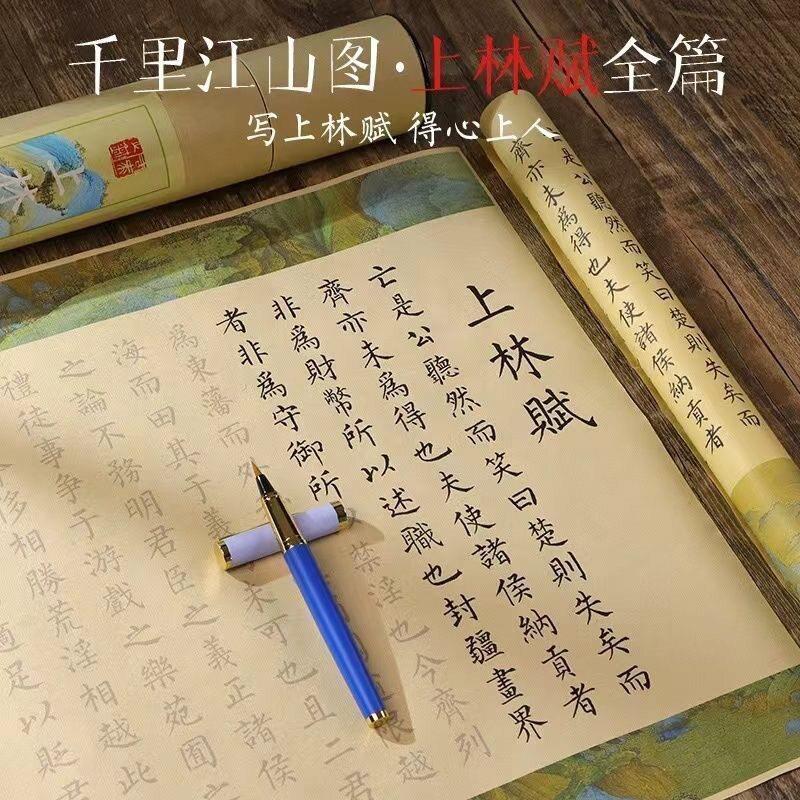 千里江山图·上林赋全篇
写上林赋 得心上人
上林賦
亡是公聽然而笑曰楚則失矣而
齊亦未為得也夫使諸侯納貢者
非為財幣所以述職也封疆畫界
者非為守御所禁淫也今齊列
為東藩而外限越
海而田其于義未可也且二君
之論不務明君臣之義正諸侯
禮徒事爭于游戲之樂苑囿
侈相勝荒淫相越此
適足以貶君
亡是公聽然而笑曰楚則失矣而
齊亦未為得也夫使諸侯納貢者